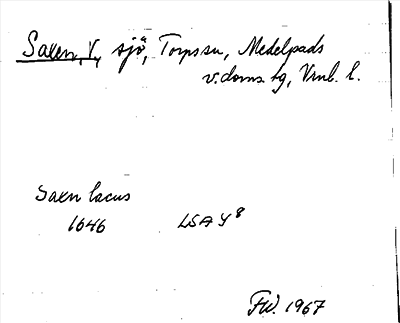 Saxen, V, sjö, Torps sn, Medelpads
v. doms. tg, Vrnl. l.
Saxn lacus
1646 LSA Y 8
FW. 1967